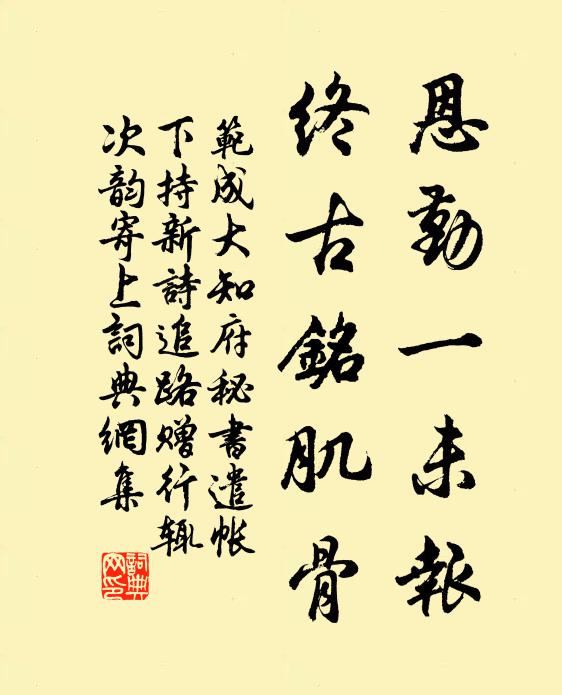 恩勤一未報
終古銘肌骨
範成大知府秘書遣帐
下持新詩追路赠行辄
次韵寄上詞典網集
詞典
网印